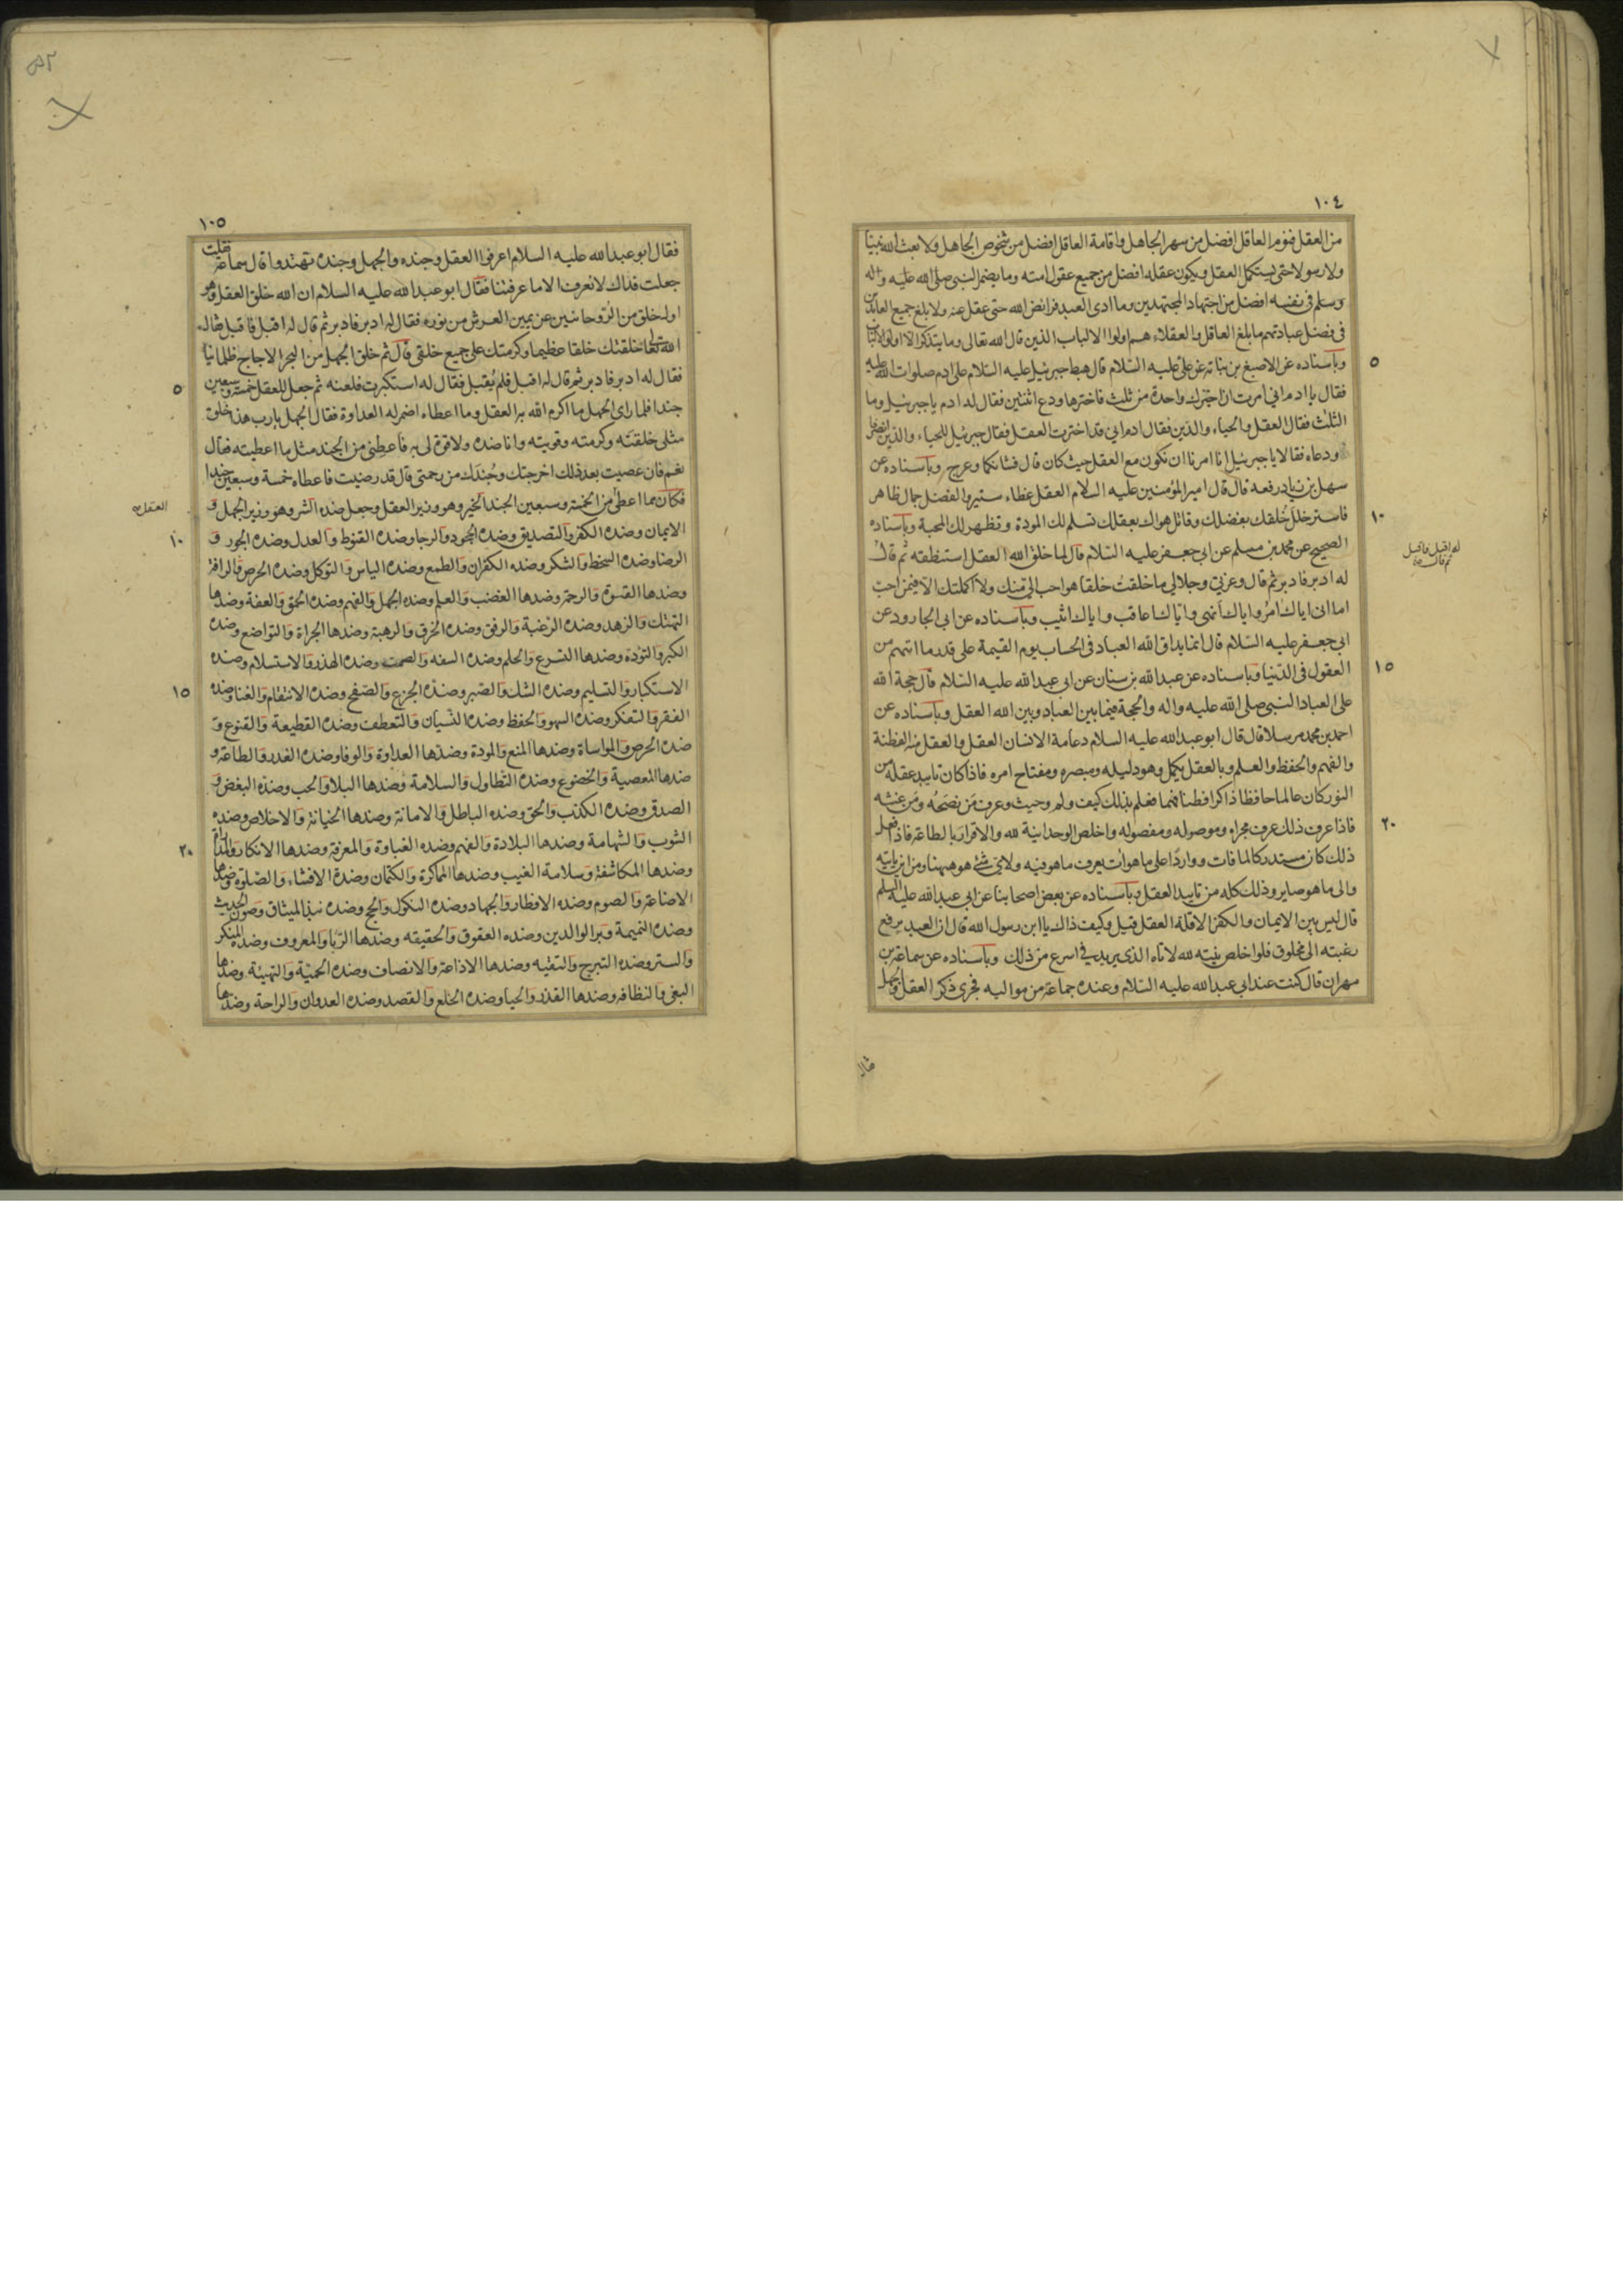 ١٠٤
من العقل فنوم العاقل افضل من سهر الجاهل واقامة العاقل افضل من شخوص الجاهل ولا بعث الله نبيا
ولا رسولا حتى يستكمل العقل ويكون عقله افضل من جميع عقول امته وما يضمر النبي صلى الله عليه واله
وسلم في نفسه افضل من اجتهاد المجتهدين وما ادى العبد فرائض الله حتى عقل عنه ولا بلغ جميع العابدين
في فضل عبادتهم ما بلغ العاقل والعقلاء هم اولوا الالباب الذين قال الله تعالى وما يتذكر الا اولوا الالباب
٥
وباسناده عن الاصبغ بن نباتة عن علي عليه السلام قال هبط جبرئيل عليه السلام على ادم صلوات الله عليه
فقال يا ادم اني امرت ان اخيرك واحدة من ثلث فاخترها ودع اثنتين فقال له ادم يا جبرئيل وما
الثلث فقال العقل والحياء والدين فقال ادم اني قد اخترت العقل فقال جبرئيل للحياء والدين انصرفا
ودعاه فقالا يا جبرئيل انا امرنا ان نكون مع العقل حيث كان قال فشانكما وعرج وباسناده عن
سهل بن زياد رفعه قال قال امير المؤمنين عليه السلام العقل غطاء ستير والفضل جمال ظاهر
١٠
فاستر خلل خلقك بفضلك وقاتل هواك بعقلك تسلم لك المودة وتظهر لك المحبة وباسناده
الصحيح عن محمد بن مسلم عن ابي جعفر عليه السلام قال لما خلق الله العقل استنطقه ثم قال
له اقبل فاقبل
ثم قال صح
له ادبر فادبر ثم قال وعزتي وجلالي ما خلقت خلقا هو احب الي منك ولا اكملتك الا فيمن احب
اما اني اياك امر واياك انهى واياك اعاقب واياك اثيب وباسناده عن ابي الجارود عن
ابي جعفر عليه السلام قال انما يداق الله العباد في الحساب يوم القيمة على قدر ما اتيهم من
١٥
العقول في الدنيا وباسناده عن عبد الله بن سنان عن ابي عبد الله عليه السلام قال حجة الله
على العباد النبي صلى الله عليه واله والحجة فيما بين العباد وبين الله العقل وباسناده عن
احمد بن محمد مرسلا قال قال ابو عبد الله عليه السلام دعامة الانسان العقل والعقل منه الفطنة
والفهم والحفظ والعلم وبالعقل يكمل وهو دليله ومبصره ومفتاح امره فاذا كان تاييد عقله من
النور كان عالما حافظا ذاكرا فطنا فهما فعلم بذلك كيف ولم وحيث وعرف من نصحه ومن غشه
٢٠
فاذا عرف ذلك عرف مجراه وموصوله ومفصوله واخلص الوحدانية لله والاقرار بالطاعة فاذا فعل
ذلك كان مستدركا لما فات وواردا على ما هو ات يعرف ما هو فيه ولاي شئ هو ههنا ومن اين ياتيه
والى ما هو صاير وذلك كله من تاييد العقل وباسناده عن بعض اصحابنا عن ابي عبد الله عليه السلم
قال ليس بين الايمان والكفر الا قلة العقل قيل وكيف ذاك يا ابن رسول الله قال ان العبد يرفع
رغبته الى مخلوق فلو اخلص نيته لله لاتاه الذي يريد في اسرع من ذلك وباسناده عن سماعة بن
مهران قال كنت عند ابي عبد الله عليه السلام وعنده جماعة من مواليه فجرى ذكر العقل والجهل
فقال
١٠٥
فقال ابو عبد الله عليه السلام اعرفوا العقل وجنده والجهل وجنده تهتدوا قال سماعة فقلت
جعلت فداك لا نعرف الا ما عرفتنا فقال ابو عبد الله عليه السلام ان الله خلق العقل وهو
اول خلق من الروحانيين عن يمين العرش من نوره فقال له ادبر فادبر ثم قال له اقبل فاقبل فقال
الله تعالى خلقتك خلقا عظيما وكرمتك على جميع خلقي قال ثم خلق الجهل من البحر الاجاج ظلمانيا
٥
فقال له ادبر فادبر ثم قال له اقبل فلم يقبل فقال له استكبرت فلعنه ثم جعل للعقل خمسة وسبعين
جندا فلما راى الجهل ما اكرم الله به العقل وما اعطاه اضمر له العداوة فقال الجهل يا رب هذا خلق
مثلي خلقته وكرمته وقويته وانا ضده ولا قوة لي به فاعطني من الجند مثل ما اعطيته فقال
نعم فان عصيت بعد ذلك اخرجتك وجندك من رحمتي قال قد رضيت فاعطاه خمسة وسبعين جندا
فكان مما اعطى من الخمسة وسبعين الجند الخير وهو وزير العقل وجعل ضده الشر وهو وزير الجهل و
العقل صح
١٠
الايمان وضده الكفر والتصديق وضده الجحود والرجا وضده القنوط والعدل وضده الجور و
الرضا وضده السخط والشكر وضده الكفران والطمع وضده الياس والتوكل وضده الحرص والرافة
وضدها القسوة والرحمة وضدها الغضب والعلم وضده الجهل والفهم وضده الحمق والعفة وضدها
التهتك والزهد وضده الرغبة والرفق وضده الخرق والرهبة وضدها الجراة والتواضع وضده
الكبر والتؤدة وضدها التسرع والحلم وضده السفه والصمت وضده الهذر والاستسلام وضده
١٥
الاستكبار والتسليم وضده الشك والصبر وضده الجزع والصفح وضده الانتقام والغنا وضده
الفقر والتفكر وضده السهو والحفظ وضده النسيان والتعطف وضده القطيعة والقنوع و
ضده الحرص والمواساة وضدها المنع والمودة وضدها العداوة والوفا وضده الغدر والطاعة و
ضدها المعصية والخضوع وضده التطاول والسلامة وضدها البلا والحب وضده البغض و
الصدق وضده الكذب والحق وضده الباطل والامانة وضدها الخيانة والاخلاص وضده
٢٠
الشوب والشهامة وضدها البلادة والفهم وضده الغباوة والمعرفة وضدها الانكار والمداراة
وضدها المكاشفة وسلامة الغيب وضدها المماكرة والكتمان وضده الافشاء والصلوة وضدها
الاضاعة والصوم وضده الافطار والجهاد وضده النكول والحج وضده نبذ الميثاق وصون الحديث
وضده النميمة وبر الوالدين وضده العقوق والحقيقه وضدها الريا والمعروف وضده المنكر
والستر وضده التبرج والتقيه وضدها الاذاعة والانصاف وضده الحمية والتهيئة وضدها
البغي والنظافة وضدها القذر والحيا وضده الخلع والقصد وضده العدوان والراحة وضدها